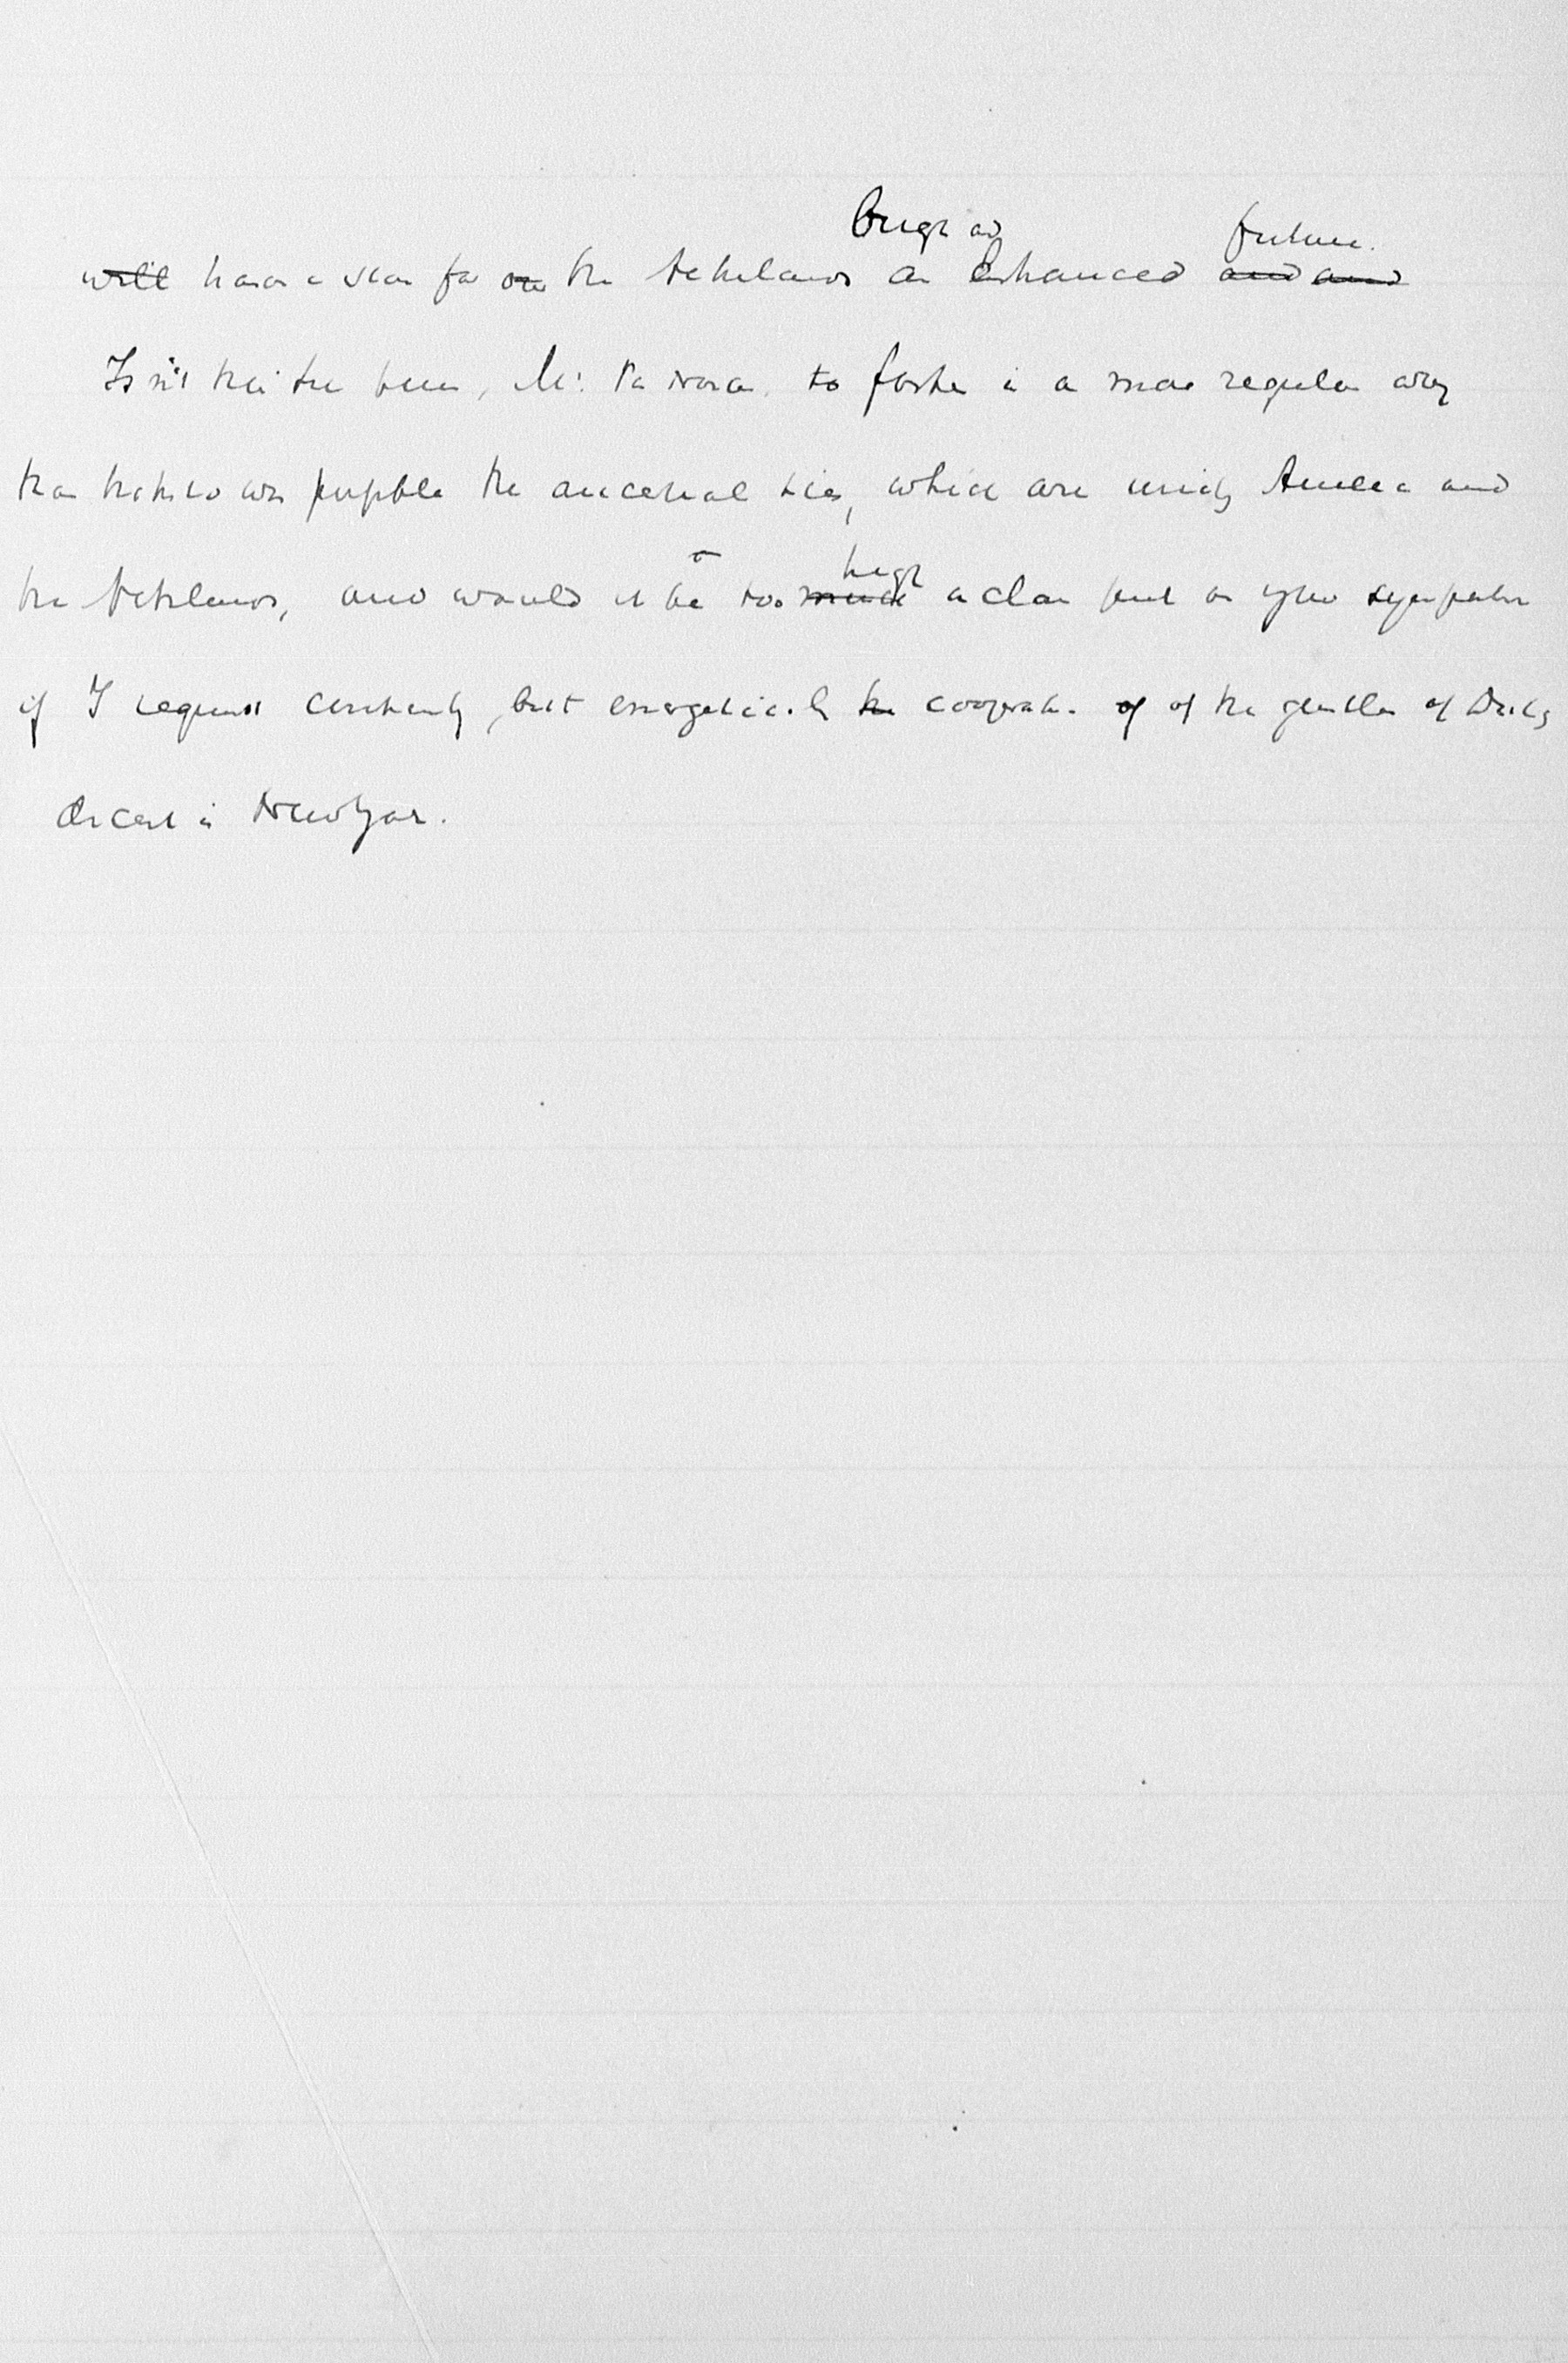 bright and future.
will have a            for the Netherlands an enhanced and and
Isn't the time        , Mr. Van Norden, to foster in a more regular way
than hitherto was possible the ancestral ties, which are uniting America and
the Netherlands, and would it be too high much a claim         on your sympathy
if I request        , but energetically the cooperation of of the gentlemen of Dutch
descent in New York.